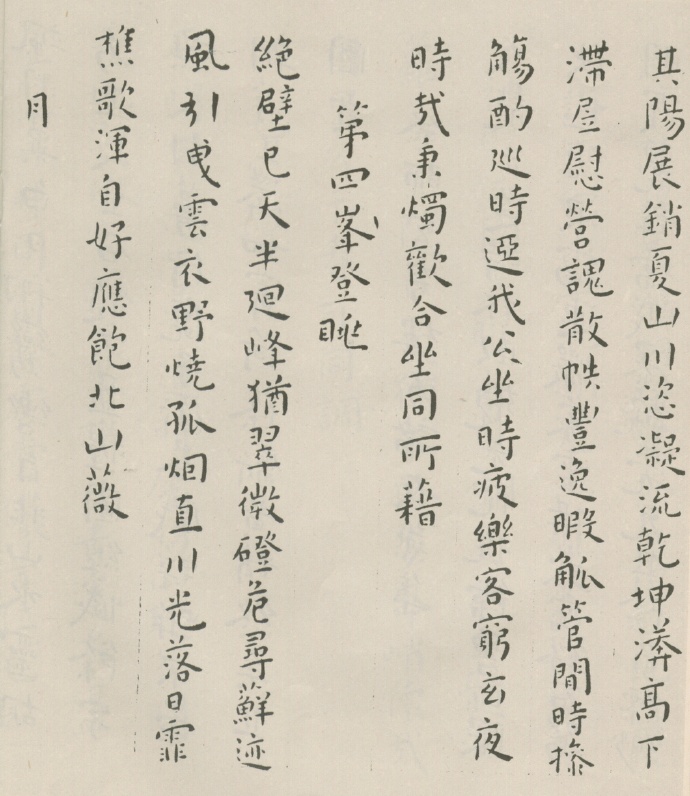 其陽展銷夏山川恣凝流乾坤漭高下
滯屋慰營謥散帙豐逸暇觚管閒時摻
觴酌巡時迓我公坐時疲樂客窮玄夜
時哉秉燭歡合坐同所藉
第四峯登眺
絕壁已天半迴峰猶翠微磴危尋蘚迹
風引曳雲衣野燒孤烟直川光落日霏
樵歌渾自好應飽北山薇
月